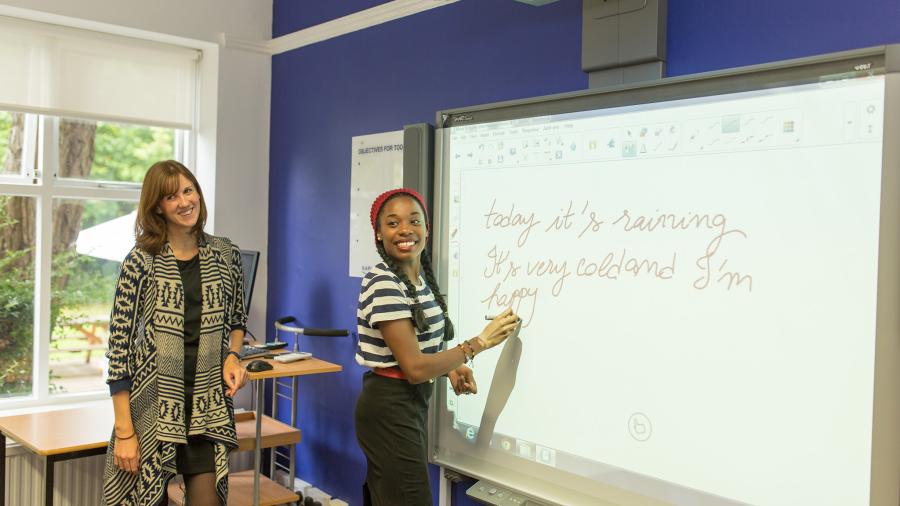 OBJECTIVES FOR TOD
today it's raining
It's very cold and I'm
happy